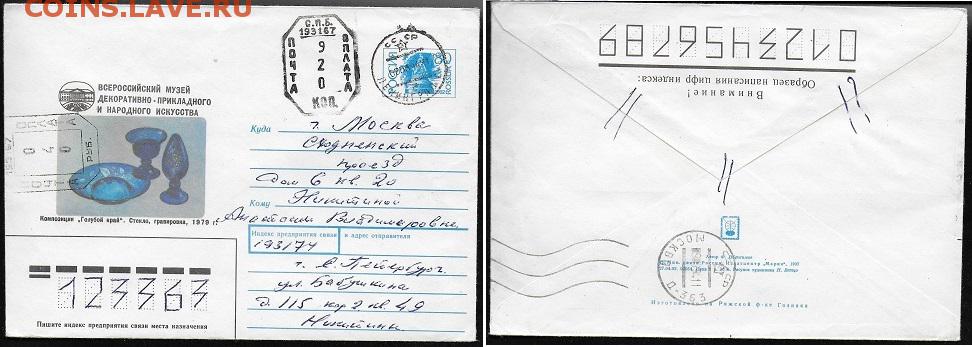 COINS.LAVE.RU
ВСЕРОССИЙСКИЙ МУЗЕЙ
ДЕКОРАТИВНО-ПРИКЛАДНОГО
И НАРОДНОГО ИСКУССТВА
Композиция „Голубой край". Стекло, гравировка, 1979 г.
С.П.Б.
193167
ПОЧТА
920
КОП
ОПЛАТА
СССР
РОССИЯ
ROSSIJA
80
0
4
0
РУБ.
Куда
г. Москва
Сходненский
проезд
дом 6 кв. 20
Кому
Никитиной
Анастасии Владимировне
Индекс предприятия связи
и адрес отправителя
193174
г. С. Петербург
ул. Бабушкина
д. 115 кор 2 кв. 49
Никитины
123363
Пишите индекс предприятия связи места назначения
0123456789
Образец написания цифр индекса:
Внимание!
СССР
МОСКВА
Д-363
Изготовлено на Рижской ф-ке Гознака